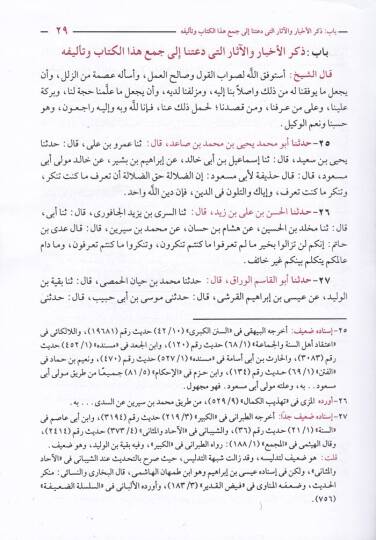 باب: ذكر الأخبار والآثار التى دعتنا إلى جمع هذا الكتاب وتأليفه ٢٩
باب: ذكر الأخبار والآثار التى دعتنا إلى جمع هذا الكتاب وتأليفه
قال الشيخ: أستوفق اللَّه لصواب القول وصالح العمل، وأسأله عصمة من الزلل، وأن
يجعل ما يوفقنا له من ذلك واصلًا بنا إليه، ومزلفنا لديه، وأن يجعل ما علَّمنا حجة لنا، وبركة
علينا، وعلى من عرفنا، ومن قصدنا؛ لحمل ذلك عنا، فإنا للَّه وبه وإليه راجعون، وهو
حسبنا ونعم الوكيل.
٢٥- حدثنا أبو محمد يحيى بن محمد بن صاعد، قال: ثنا عمرو بن على، قال: حدثنا
يحيى بن سعيد، قال: ثنا إسماعيل بن أبى خالد، عن إبراهيم بن بشير، عن خالد مولى أبى
مسعود، قال: قال حذيفة لأبى مسعود: إن الضلالة حق الضلالة أن تعرف ما كنت تنكر،
وتنكر ما كنت تعرف، وإياك والتلون فى الدين، فإن دين اللَّه واحد.
٢٦- حدثنا الحسن بن على بن زيد، قال: ثنا السرى بن يزيد الجافورى، قال: ثنا أبى،
قال: ثنا مخلد بن الحسين، عن هشام بن حسان، عن محمد بن سيرين، قال: قال عدى بن
حاتم: إنكم لن تزالوا بخير ما لم تعرفوا ما كنتم تنكرون، وتنكروا ما كنتم تعرفون، وما دام
عالمكم يتكلم بينكم غير خائف.
٢٧- حدثنا أبو القاسم الوراق، قال: حدثنا محمد بن حيان الحمصى، قال: ثنا بقية بن
الوليد، عن عيسى بن إبراهيم القرشى، قال: حدثنى موسى بن أبى حبيب، قال: حدثنى
٢٥- إسناده ضعيف: أخرجه البيهقى فى «السنن الكبرى» (٤٢/١٠) حديث رقم (١٩٦٨١)، واللالكائى فى
«اعتقاد أهل السنة والجماعة» (٦٨/١) حديث رقم (١٢٠)، وابن الجعد فى «مسنده» (٤٥٢/١) حديث
رقم (٣٠٨٣)، والحارث بن أبى أسامة فى «مسنده» (٥٢٧/١) حديث رقم (٤٧٠)، ونعيم بن حماد فى
«الفتن» (٦٩/١) حديث رقم (١٣٤)، وابن حزم فى «الإحكام» (٨١/٥) جميعًا من طريق مولى أبى
مسعود.. به، وعلته مولى أبى مسعود. فهو مجهول.
٢٦- أورده المزى فى «تهذيب الكمال» (٥٢٩/٩)، من طريق محمد بن سيرين عن السدى.... به.
٢٧- إسناده ضعيف جدًّا: أخرجه الطبرانى فى «الكبير» (٢١٩/٣) حديث رقم (٣١٩٤)، وابن أبى عاصم فى
«السنة» (٢١/١) حديث رقم (٣٦)، والشيبانى فى «الآحاد والمثانى» (٣٧٣/٤) حديث رقم (٢٤١٤)،
وقال الهيثمى فى «المجمع» (١٨٨/١): رواه الطبرانى فى «الكبير»، وفيه بقية بن الوليد، وهو ضعيف.
قلت: هو ضعيف لتدليسه، وقد زالت شبهة التدليس، حيث صرح بالتحديث عند الشيبانى فى «الآحاد
والمثانى»، ولكن فى إسناده عيسى بن إبراهيم وهو ابن طهمان الهاشمى، قال البخارى والنسائى: منكر
الحديث، وضعفه المناوى فى «فيض القدير» (١٨٣/٣)، وأورده الألبانى فى «السلسلة الضعيفة»
(٧٥٦).